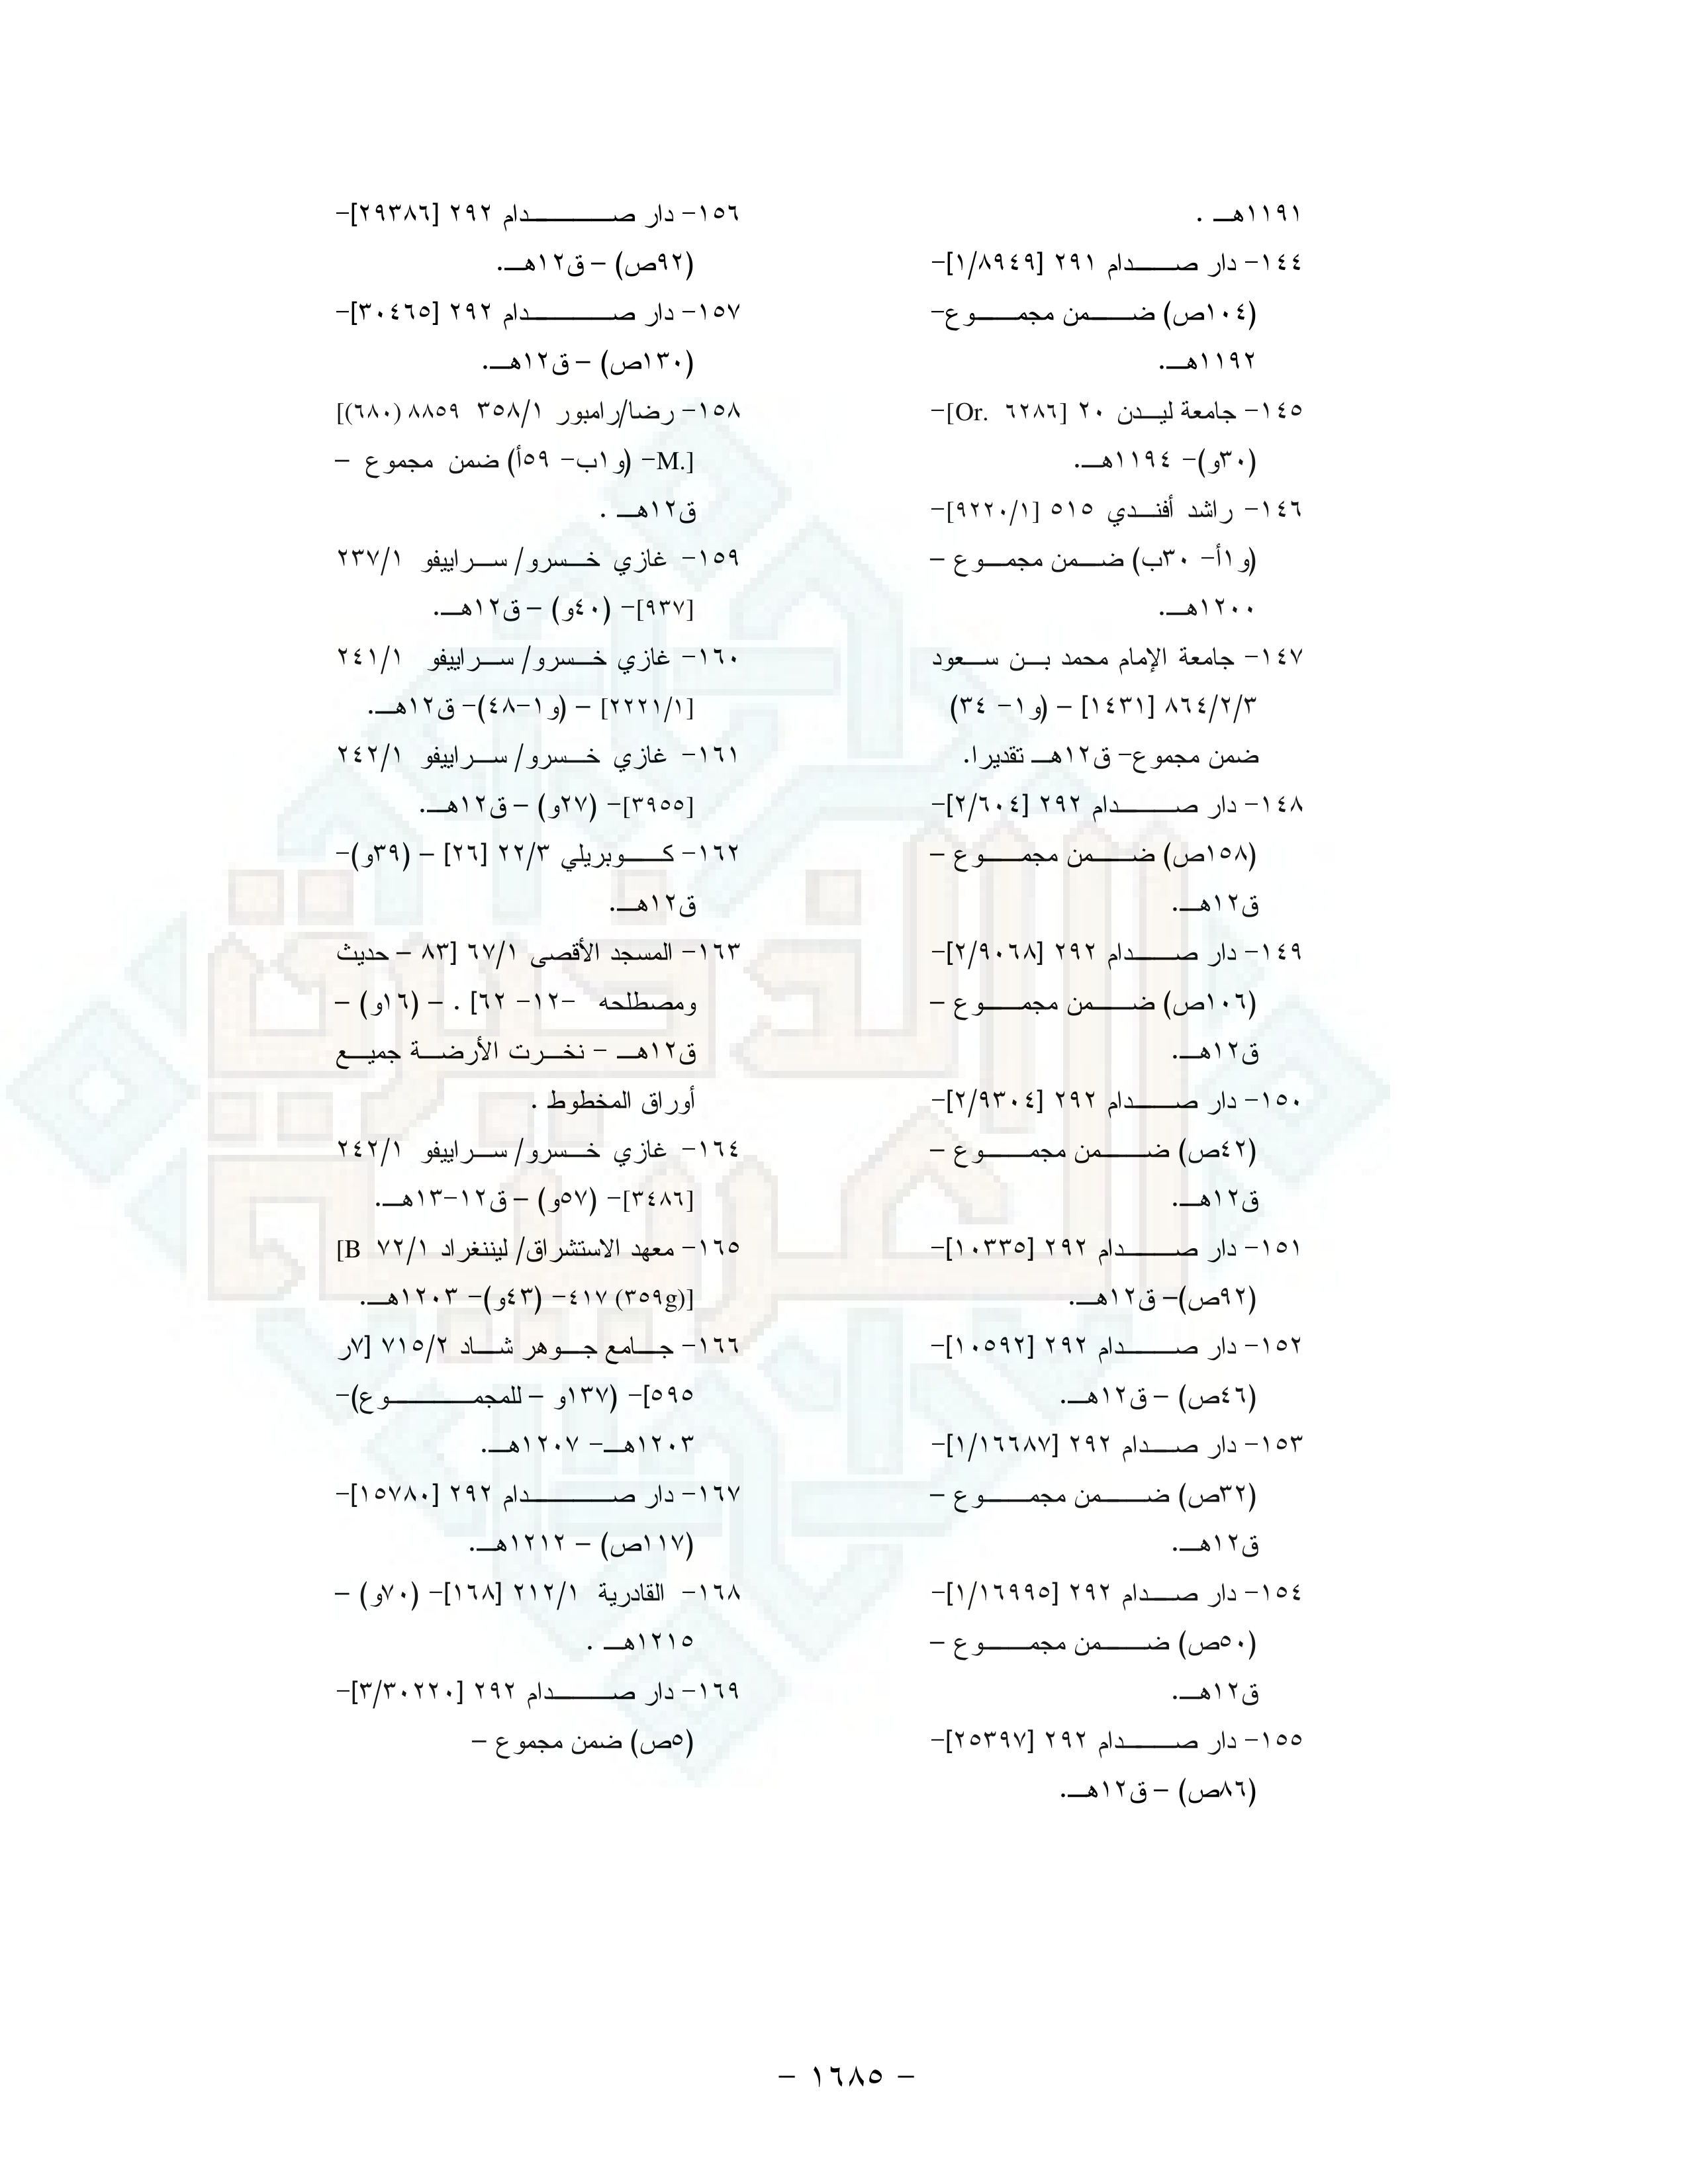 ١١٩١هـ .
١٤٤- دار صدام ٢٩١ [١/٨٩٤٩]-
(١٠٤ص) ضمن مجموع-
١١٩٢هـ.
١٤٥- جامعة ليدن ٢٠ [Or. ٦٢٨٦]-
(٣٠و)- ١١٩٤هـ.
١٤٦- راشد أفندي ٥١٥ [٩٢٢٠/١]-
(و١أ- ٣٠ب) ضمن مجموع –
١٢٠٠هـ.
١٤٧- جامعة الإمام محمد بن سعود
٨٦٤/٢/٣ [١٤٣١] – (و١- ٣٤)
ضمن مجموع- ق١٢هـ تقديرا.
١٤٨- دار صدام ٢٩٢ [٢/٦٠٤]-
(١٥٨ص) ضمن مجموع –
ق١٢هـ.
١٤٩- دار صدام ٢٩٢ [٢/٩٠٦٨]-
(١٠٦ص) ضمن مجموع –
ق١٢هـ.
١٥٠- دار صدام ٢٩٢ [٢/٩٣٠٤]-
(٤٢ص) ضمن مجموع –
ق١٢هـ.
١٥١- دار صدام ٢٩٢ [١٠٣٣٥]-
(٩٢ص)– ق١٢هـ.
١٥٢- دار صدام ٢٩٢ [١٠٥٩٢]-
(٤٦ص) – ق١٢هـ.
١٥٣- دار صدام ٢٩٢ [١/١٦٦٨٧]-
(٣٢ص) ضمن مجموع –
ق١٢هـ.
١٥٤- دار صدام ٢٩٢ [١/١٦٩٩٥]-
(٥٠ص) ضمن مجموع –
ق١٢هـ.
١٥٥- دار صدام ٢٩٢ [٢٥٣٩٧]-
(٨٦ص) – ق١٢هـ.
١٥٦- دار صدام ٢٩٢ [٢٩٣٨٦]-
(٩٢ص) – ق١٢هـ.
١٥٧- دار صدام ٢٩٢ [٣٠٤٦٥]-
(١٣٠ص) – ق١٢هـ.
١٥٨- رضا/رامبور ٣٥٨/١ ٨٨٥٩ (٦٨٠)]
[.M- (و١ب- ٥٩أ) ضمن مجموع –
ق١٢هـ .
١٥٩- غازي خسرو/ سراييفو ٢٣٧/١
[٩٣٧]- (٤٠و) – ق١٢هـ.
١٦٠- غازي خسرو/ سراييفو ٢٤١/١
[٢٢٢١/١] – (و١-٤٨)- ق١٢هـ.
١٦١- غازي خسرو/ سراييفو ٢٤٢/١
[٣٩٥٥]- (٢٧و) – ق١٢هـ.
١٦٢- كوبريلي ٢٢/٣ [٢٦] – (٣٩و)-
ق١٢هـ.
١٦٣- المسجد الأقصى ٦٧/١ [٨٣ – حديث
ومصطلحه -١٢- ٦٢] . – (١٦و) –
ق١٢هـ - نخرت الأرضة جميع
أوراق المخطوط .
١٦٤- غازي خسرو/ سراييفو ٢٤٢/١
[٣٤٨٦]- (٥٧و) – ق١٢-١٣هـ.
١٦٥- معهد الاستشراق/ ليننغراد ٧٢/١ B]
[(٣٥٩g) ٤١٧- (٤٣و)- ١٢٠٣هـ.
١٦٦- جامع جوهر شاد ٧١٥/٢ [٧ر
٥٩٥]- (١٣٧و – للمجموع)-
١٢٠٣هـ- ١٢٠٧هـ.
١٦٧- دار صدام ٢٩٢ [١٥٧٨٠]-
(١١٧ص) – ١٢١٢هـ.
١٦٨- القادرية ٢١٢/١ [١٦٨]- (٧٠و) –
١٢١٥هـ .
١٦٩- دار صدام ٢٩٢ [٣/٣٠٢٢٠]-
(٥ص) ضمن مجموع –
- ١٦٨٥ -
الذخيرة
العربية